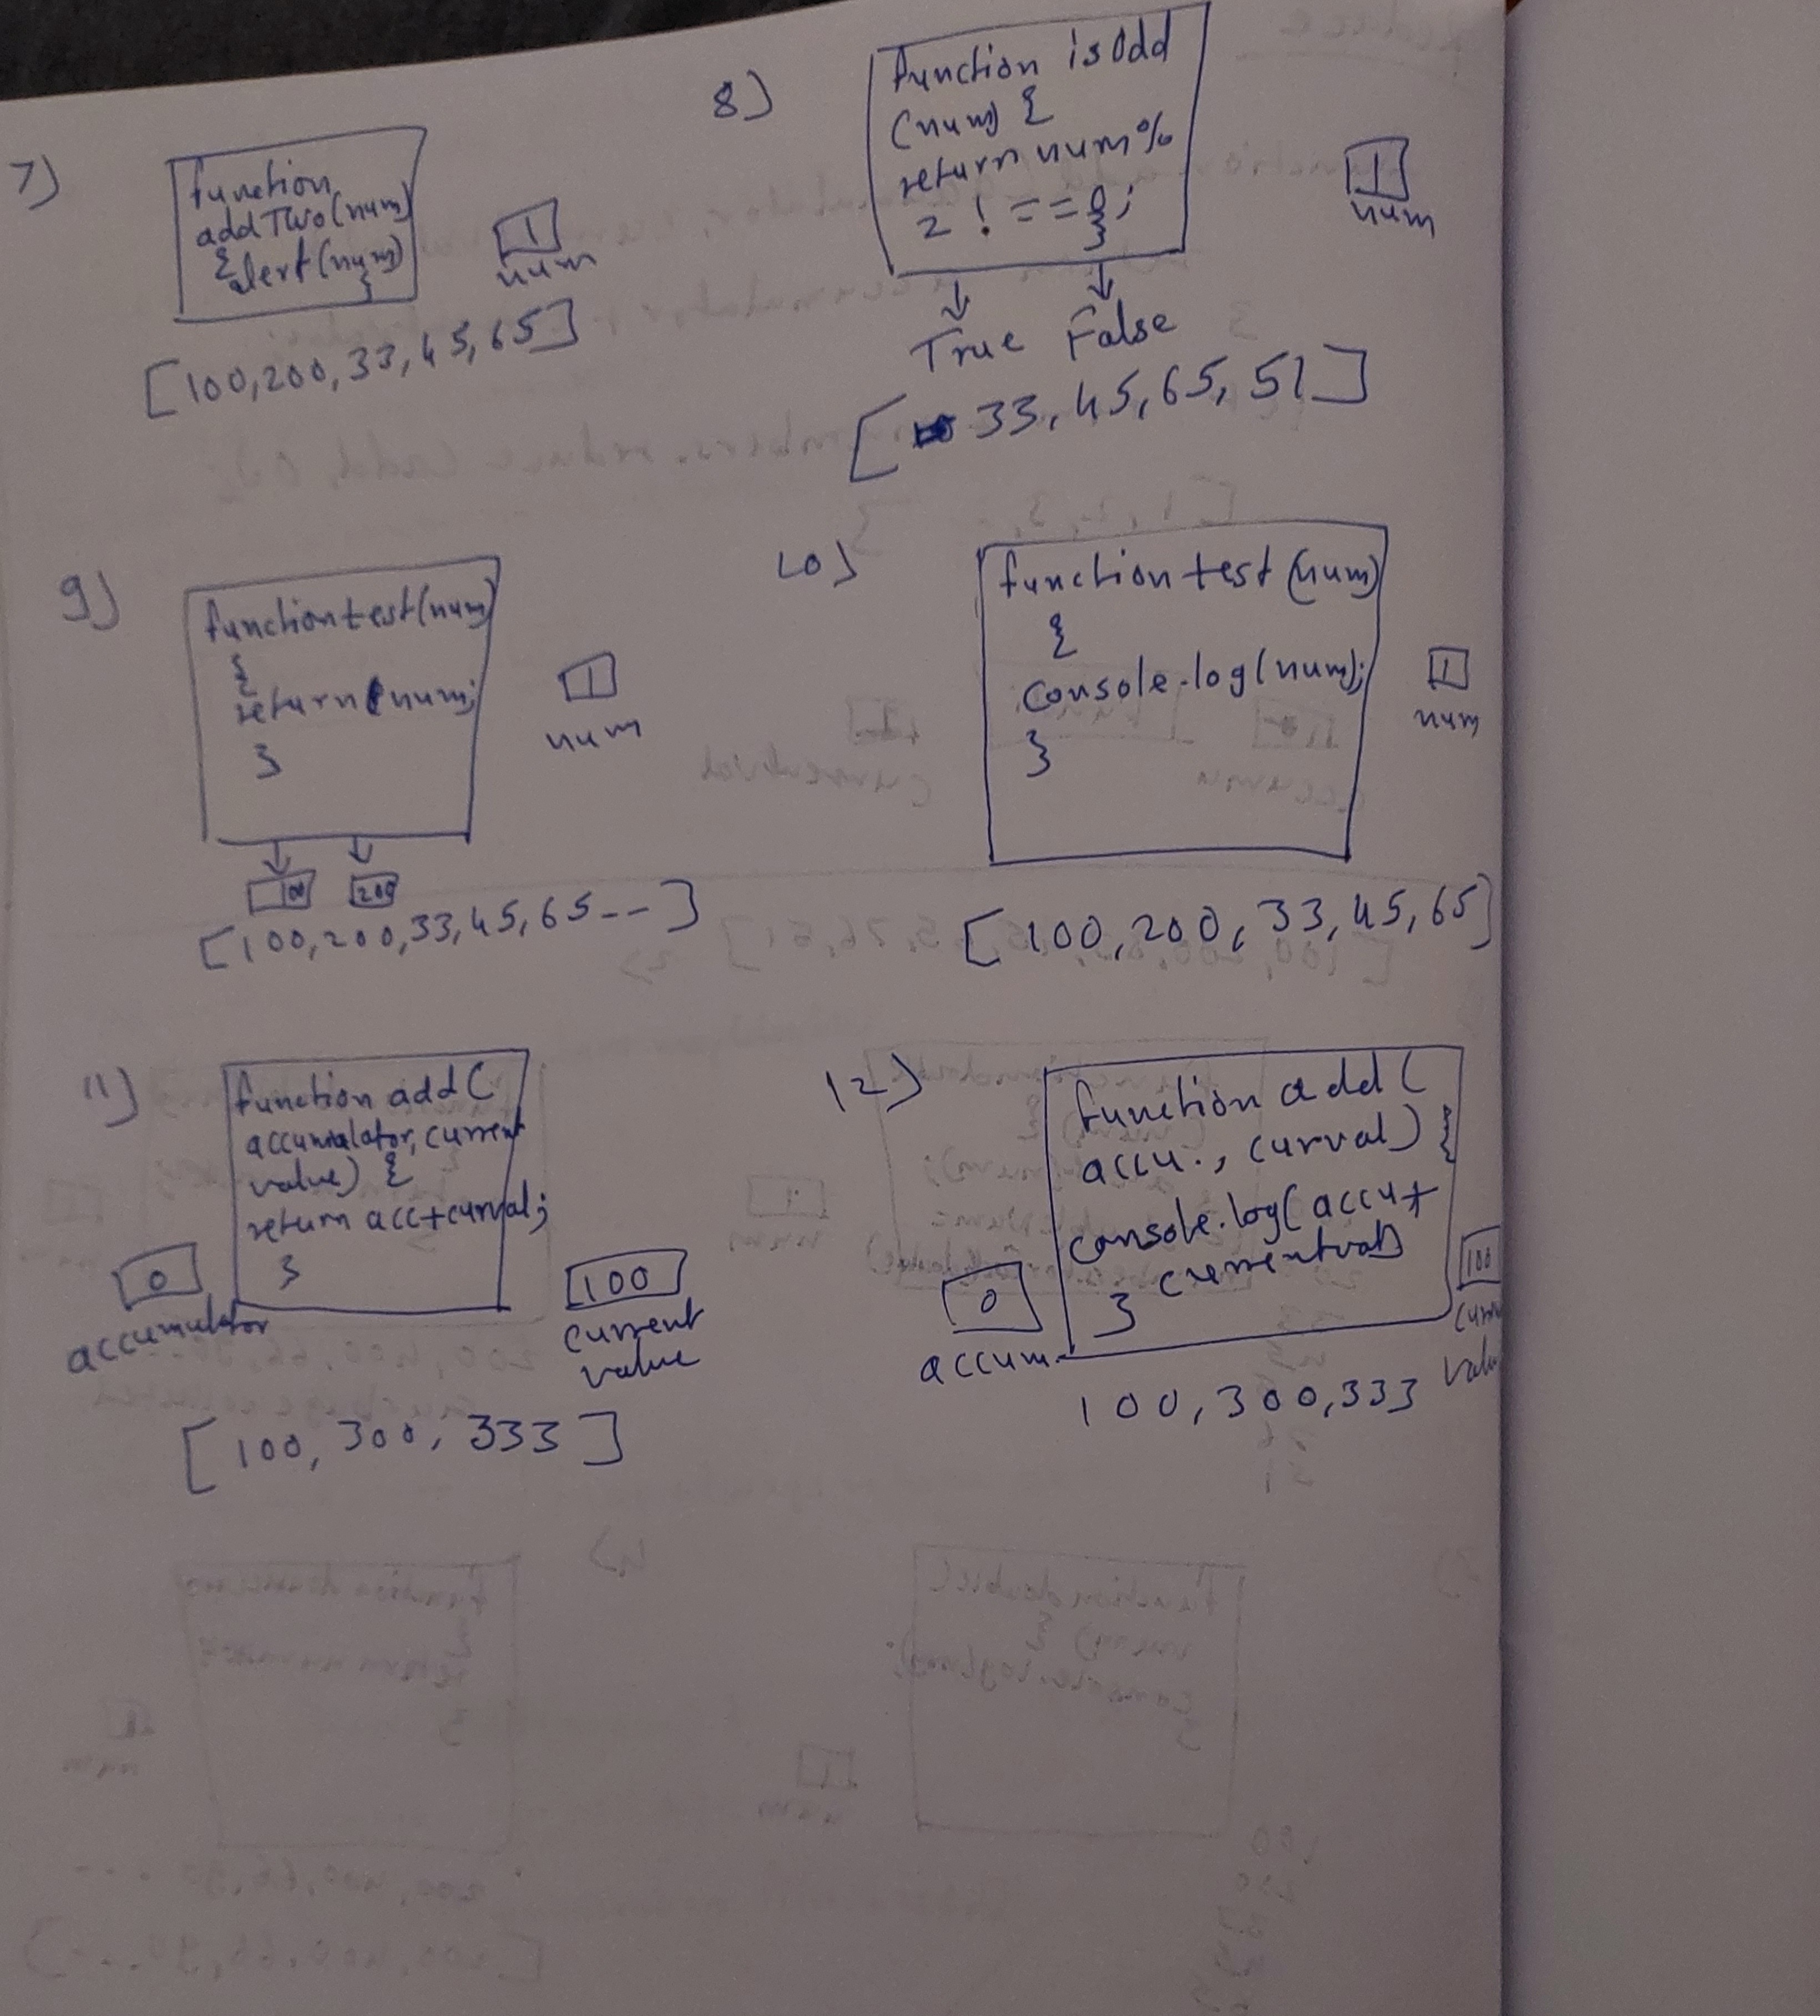 7)
function
addTwo(num)
{alert(num)
}
1
num
[100,200,33,45,65]
8)
function isOdd
(num) {
return num%
2 !==0;
}
1
num
True False
[33,45,65,51]
9)
function test(num)
{
return num;
}
1
num
100 200
[100,200,33,45,65--]
10)
function test (num)
{
console.log(num);
}
1
num
[100,200,33,45,65]
11)
function add(
accumulator, current
value) {
return acc+curval;
}
0
accumulator
100
current
value
[100, 300, 333]
12)
function add(
accu., curval) {
console.log(accu+
currentval)
}
0
accum.
100
curr
valu
100,300,333